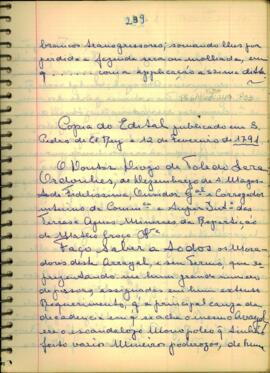 299
brancos transgressores; tomando lhes por
perdida a fazenda seca ou molhada, em
q. ...... com a applicação acima ditta
Copia do Edital publicado em S.
Pedro de El Rey a 12 de Fevereiro de 1791
O Doutor Diogo de Toledo Lara
Ordonhes, do Dezembargo de S. Mage
Sede Fidelissima, Ouvidor Gal e Corregedor
interino da Comca e Supr Intde das
Terras e Agoas Mineraes da Repartição
de Matto Groço Va
Faço Saber a todos os Mora
dores deste Arrayal, e seu Termo, que re
prezentando-me hum grande numero
de pessoas, assignadas em hum extenso
Requerimento, q a principal cauza da
decadencia em q se acha o mesmo Arrayal
era o escandalozo Monopolio q tinhão
feito varios Mineiros poderozos, de hum